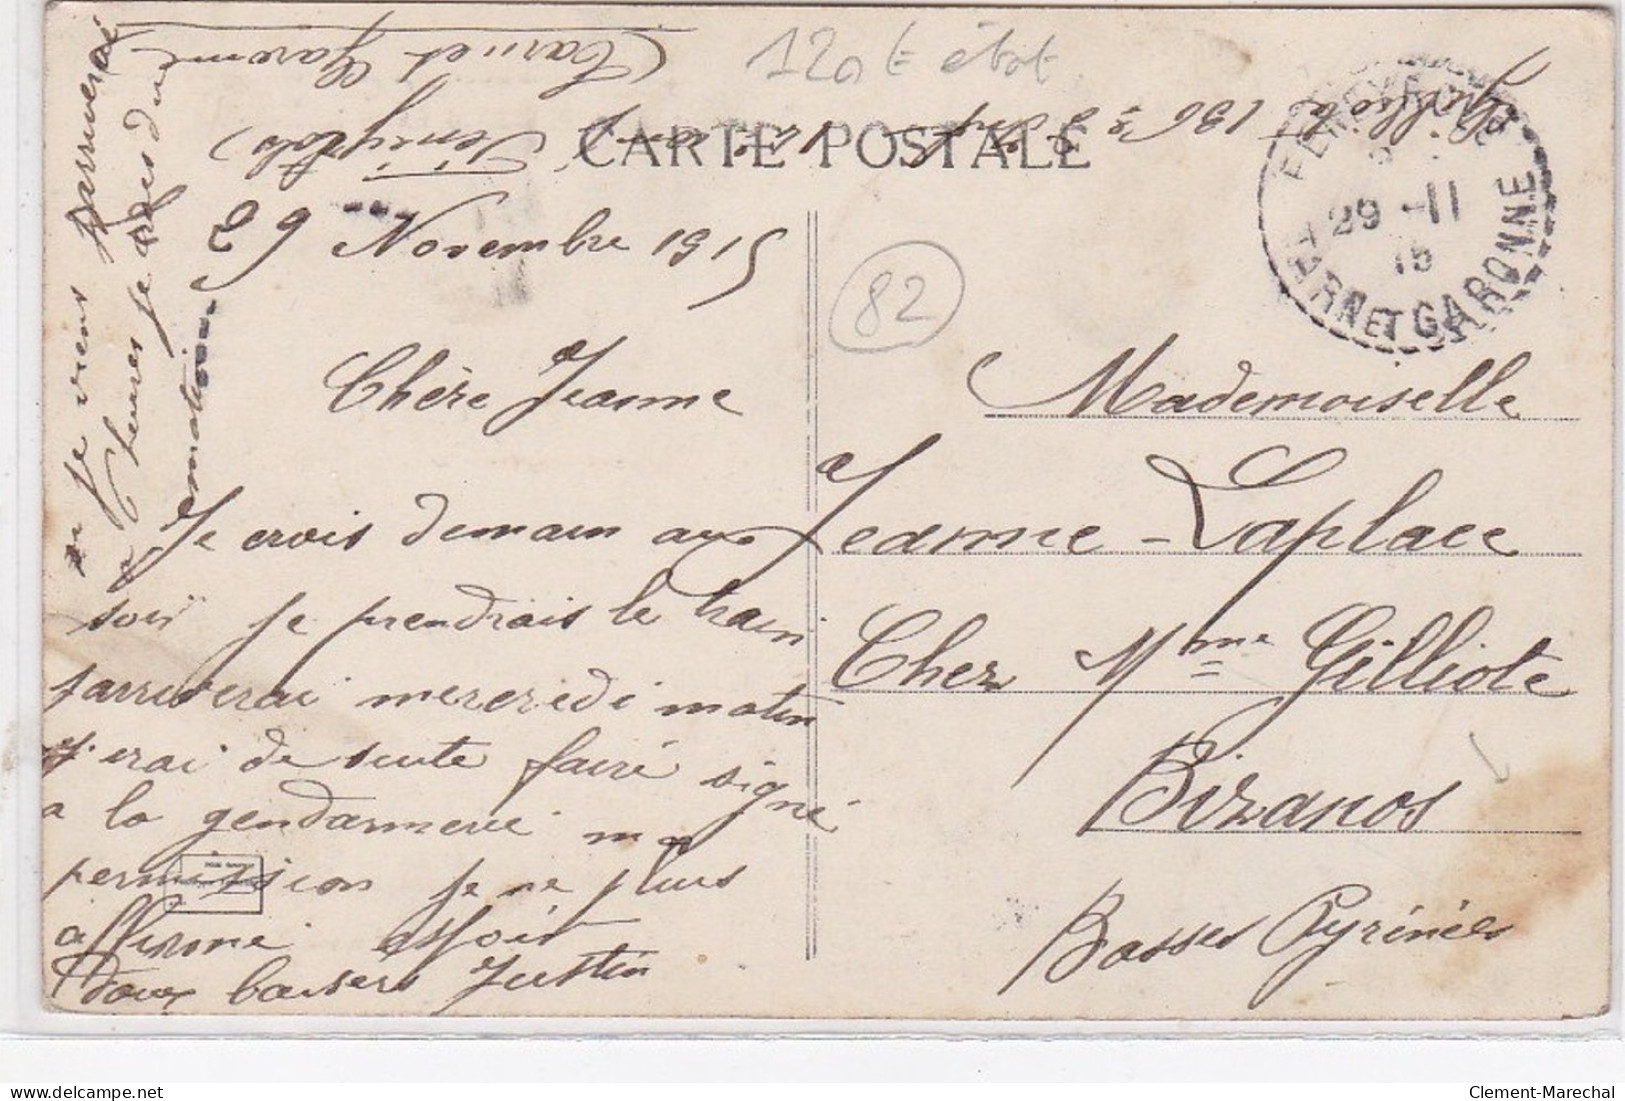 120 t état
CARTE POSTALE
(Tarn et Garonne)
29 Novembre 1915
82
29 -11
15
TARN ET GARONNE
Chère Jeanne
Je crois demain au
soir je prendrais le train
j'arriverai mercredi matin
j'irai de suite faire signé
a la gendarmerie ma
permission je ne plus
affirme espoir
doux baisers Justin
je viens j'arriverai
a heures je
matin
Mademoiselle
Jeanne - Laplace
Chez Mme Gilliote
Bizanos
Basses Pyrénées
delcampe.net
Clement-Marechal